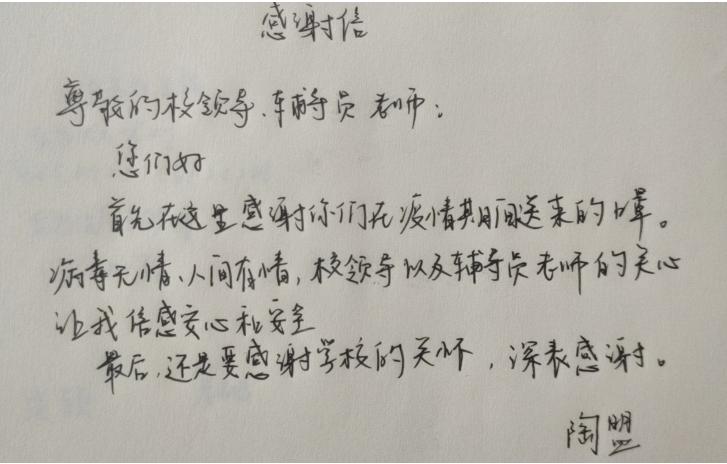 感谢信
尊敬的校领导、辅导员老师：
您们好
首先在这里感谢你们在疫情期间送来的口罩。
病毒无情、人间有情，校领导以及辅导员老师的关心
让我倍感安心和安全
最后，还是要感谢学校的关怀，深表感谢。
陶盟